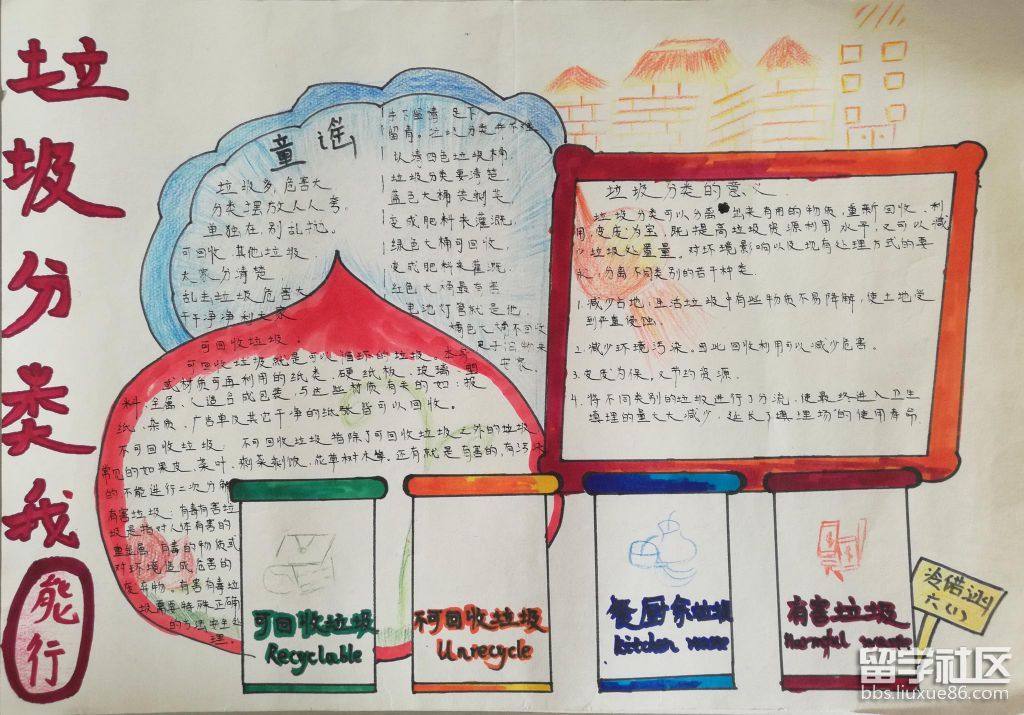 垃圾分类我
能行
童谣
垃圾多,危害大
分类摆放人人夸。
单独在,别乱拉。
可回收,其他垃圾
大家分清楚,
乱丢垃圾危害大
干干净净利大家
留青。垃圾分类
认清四色垃圾桶,
垃圾分类要清楚,
蓝色大桶装剩菜
变成肥料来灌溉,
绿色大桶可回收,
变成肥料来灌溉,
红色大桶最有害
电池灯管就是他,
橘色大桶不可收
可回收垃圾。
可回收垃圾就是可以循环的垃圾。本身
或材质可再利用的纸类、硬纸板、玻璃、塑
料、金属、人造合成包装,与这些材质有关的如:报
纸、杂质、广告单及其它干净的纸张皆可以回收。
不可回收垃圾:不可回收垃圾指除了可回收垃圾之外的垃圾
常见的如果皮、菜叶、剩菜剩饭、花草树木等。还有就是有害的,有污染
的不能进行二次分解
有害垃圾:有毒有害垃
圾是指对人体有害的
重金属、有毒的物质或
对环境造成危害的
废弃物。有害有毒垃
圾需要特殊正确
的方法安全处
理
垃圾分类的意义
垃圾分类可以分离出来有用的物质,重新回收、利
用变废为宝,既提高垃圾资源利用水平,又可以减
少垃圾处置量。对环境影响以及现有处理方式的要
求,分离不同类别的若干种类.
1.减少占地:生活垃圾中有些物质不易降解,使土地受
到严重侵蚀。
2.减少环境污染。因此回收利用可以减少危害。
3.变废为保。又节约资源.
4.将不同类别的垃圾进行了分流,使最终进入卫生
填埋的量大大减少,延长了填埋场的使用寿命
可回收垃圾
Recyclable
不可回收垃圾
Unrecycle
餐厨余垃圾
kitchen waste
有害垃圾
Harmful waste
六(1)
留学社区
bbs.liuxue86.com